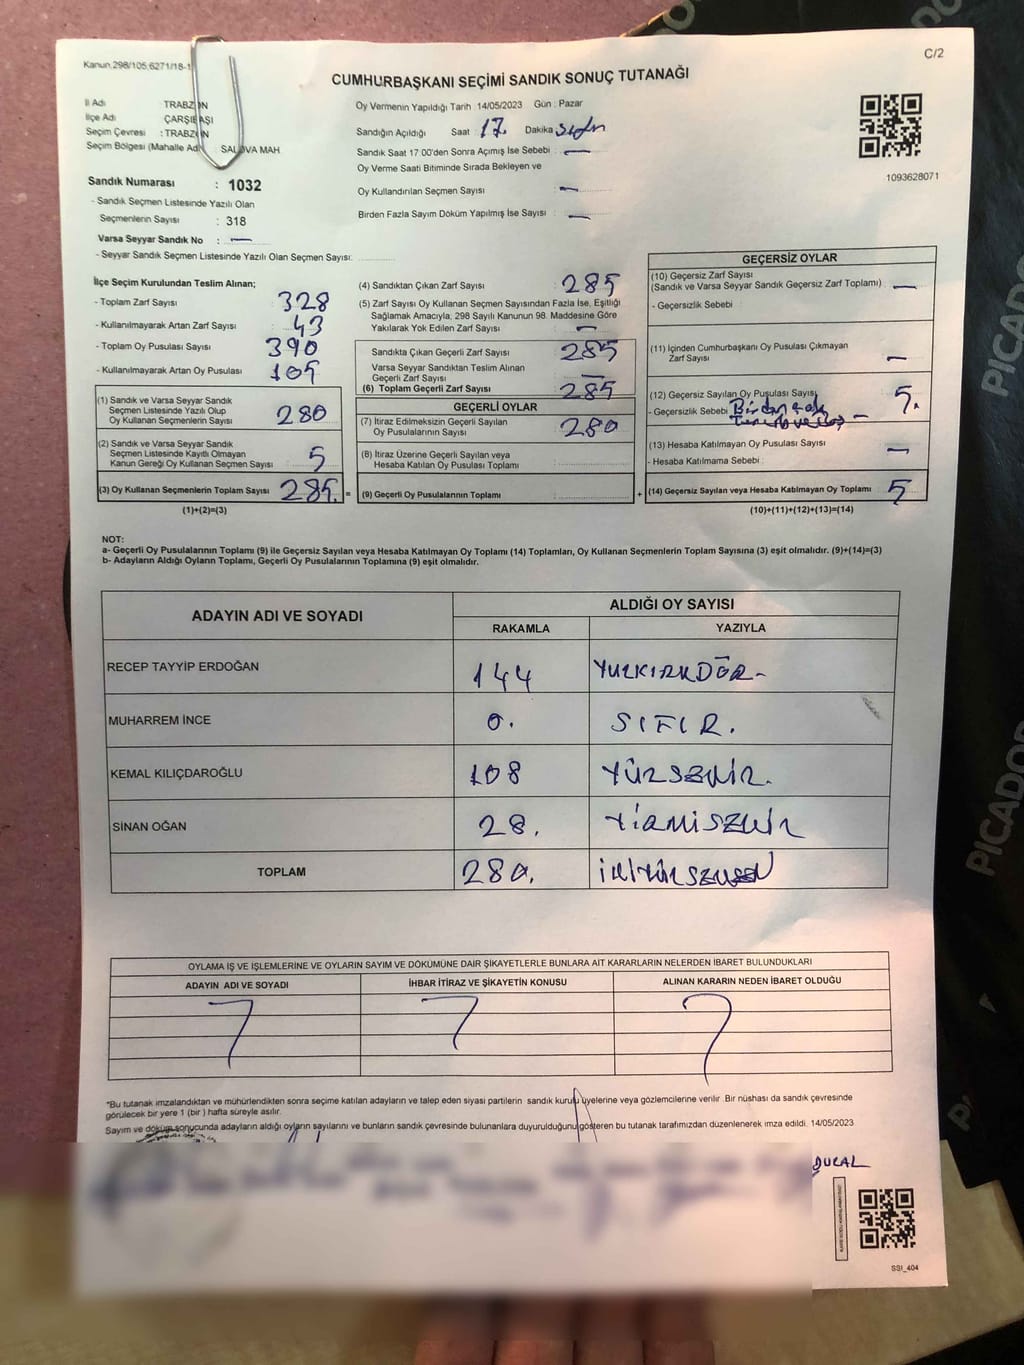 C/2
Kanun.298/105;6271/18-1
CUMHURBAŞKANI SEÇİMİ SANDIK SONUÇ TUTANAĞI
İl Adı : TRABZON
İlçe Adı : ÇARŞIBAŞI
Seçim Çevresi : TRABZON
Seçim Bölgesi (Mahalle Ad SALOVA MAH
Sandık Numarası : 1032
- Sandık Seçmen Listesinde Yazılı Olan
Seçmenlerin Sayısı : 318
Varsa Seyyar Sandık No : —
- Seyyar Sandık Seçmen Listesinde Yazılı Olan Seçmen Sayısı:
Oy Vermenin Yapıldığı Tarih : 14/05/2023 Gün : Pazar
Sandığın Açıldığı Saat : 17 Dakika
Sandık Saat 17:00'den Sonra Açımış İse Sebebi : —
Oy Verme Saati Bitiminde Sırada Bekleyen ve
Oy Kullandırılan Seçmen Sayısı : —
Birden Fazla Sayım Döküm Yapılmış İse Sayısı : —
1093628071
İlçe Seçim Kurulundan Teslim Alınan;
- Toplam Zarf Sayısı : 328
- Kullanılmayarak Artan Zarf Sayısı : 43
- Toplam Oy Pusulası Sayısı : 390
- Kullanılmayarak Artan Oy Pusulası : 105
(1) Sandık ve Varsa Seyyar Sandık
Seçmen Listesinde Yazılı Olup
Oy Kullanan Seçmenlerin Sayısı : 280
(2) Sandık ve Varsa Seyyar Sandık
Seçmen Listesinde Kayıtlı Olmayan
Kanun Gereği Oy Kullanan Seçmen Sayısı : 5
(3) Oy Kullanan Seçmenlerin Toplam Sayısı : 285.
(1)+(2)=(3)
(4) Sandıktan Çıkan Zarf Sayısı : 285
(5) Zarf Sayısı Oy Kullanan Seçmen Sayısından Fazla İse, Eşitliği
Sağlamak Amacıyla, 298 Sayılı Kanunun 98. Maddesine Göre
Yakılarak Yok Edilen Zarf Sayısı : —
Sandıkta Çıkan Geçerli Zarf Sayısı : 285
Varsa Seyyar Sandıktan Teslim Alınan
Geçerli Zarf Sayısı : —
(6) Toplam Geçerli Zarf Sayısı : 285
GEÇERLİ OYLAR
(7) İtiraz Edilmeksizin Geçerli Sayılan
Oy Pusulalarının Sayısı : 280
(8) İtiraz Üzerine Geçerli Sayılan veya
Hesaba Katılan Oy Pusulası Toplamı :
= (9) Geçerli Oy Pusulalarının Toplamı : +
GEÇERSİZ OYLAR
(10) Geçersiz Zarf Sayısı
(Sandık ve Varsa Seyyar Sandık Geçersiz Zarf Toplamı) : —
- Geçersizlik Sebebi :
(11) İçinden Cumhurbaşkanı Oy Pusulası Çıkmayan
Zarf Sayısı : —
(12) Geçersiz Sayılan Oy Pusulası Sayısı : 5.
- Geçersizlik Sebebi : Birden çok
(13) Hesaba Katılmayan Oy Pusulası Sayısı : —
- Hesaba Katılmama Sebebi :
(14) Geçersiz Sayılan veya Hesaba Katılmayan Oy Toplamı : 5
(10)+(11)+(12)+(13)=(14)
NOT:
a- Geçerli Oy Pusulalarının Toplamı (9) ile Geçersiz Sayılan veya Hesaba Katılmayan Oy Toplamı (14) Toplamları, Oy Kullanan Seçmenlerin Toplam Sayısına (3) eşit olmalıdır. (9)+(14)=(3)
b- Adayların Aldığı Oyların Toplamı, Geçerli Oy Pusulalarının Toplamına (9) eşit olmalıdır.
ADAYIN ADI VE SOYADI
ALDIĞI OY SAYISI
RAKAMLA YAZIYLA
RECEP TAYYİP ERDOĞAN 144 YÜZKIRKDÖR-
MUHARREM İNCE 0. SIFIR.
KEMAL KILIÇDAROĞLU 108 YÜZSEKİZ.
SİNAN OĞAN 28. YİRMİSEKİZ
TOPLAM 280. İKİYÜZSEKSEN
OYLAMA İŞ VE İŞLEMLERİNE VE OYLARIN SAYIM VE DÖKÜMÜNE DAİR ŞİKAYETLERLE BUNLARA AİT KARARLARIN NELERDEN İBARET BULUNDUKLARI
ADAYIN ADI VE SOYADI İHBAR İTİRAZ VE ŞİKAYETİN KONUSU ALINAN KARARIN NEDEN İBARET OLDUĞU
*Bu tutanak imzalandıktan ve mühürlendikten sonra seçime katılan adayların ve talep eden siyasi partilerin sandık kurulu üyelerine veya gözlemcilerine verilir. Bir nüshası da sandık çevresinde
görülecek bir yere 1 (bir ) hafta süreyle asılır.
Sayım ve döküm sonucunda adayların aldığı oyların sayılarını ve bunların sandık çevresinde bulunanlara duyurulduğunu gösteren bu tutanak tarafımızdan düzenlenerek imza edildi. 14/05/2023
SSI_404
PICADOR
PICADOR